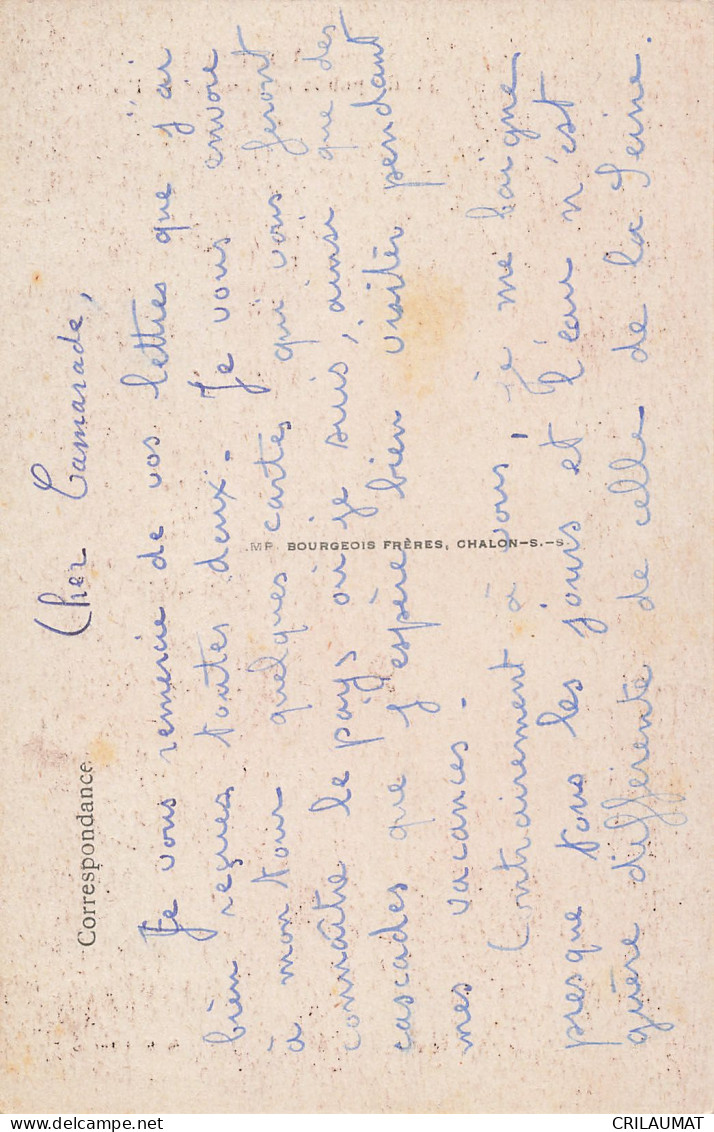 Correspondance
Cher Camarade,
Je vous remercie de vos lettres que j'ai
bien reçues toutes deux. Je vous envoie
à mon tour quelques cartes qui vous feront
connaître le pays où je suis, ainsi que des
cascades que j'espère bien visiter pendant
mes vacances.
Contrairement à vous, je me baigne
presque tous les jours et l'eau n'est
guère différente de celle de la Seine.
IMP. BOURGEOIS FRÈRES, CHALON-S.-S.
delcampe.net
CRILAUMAT